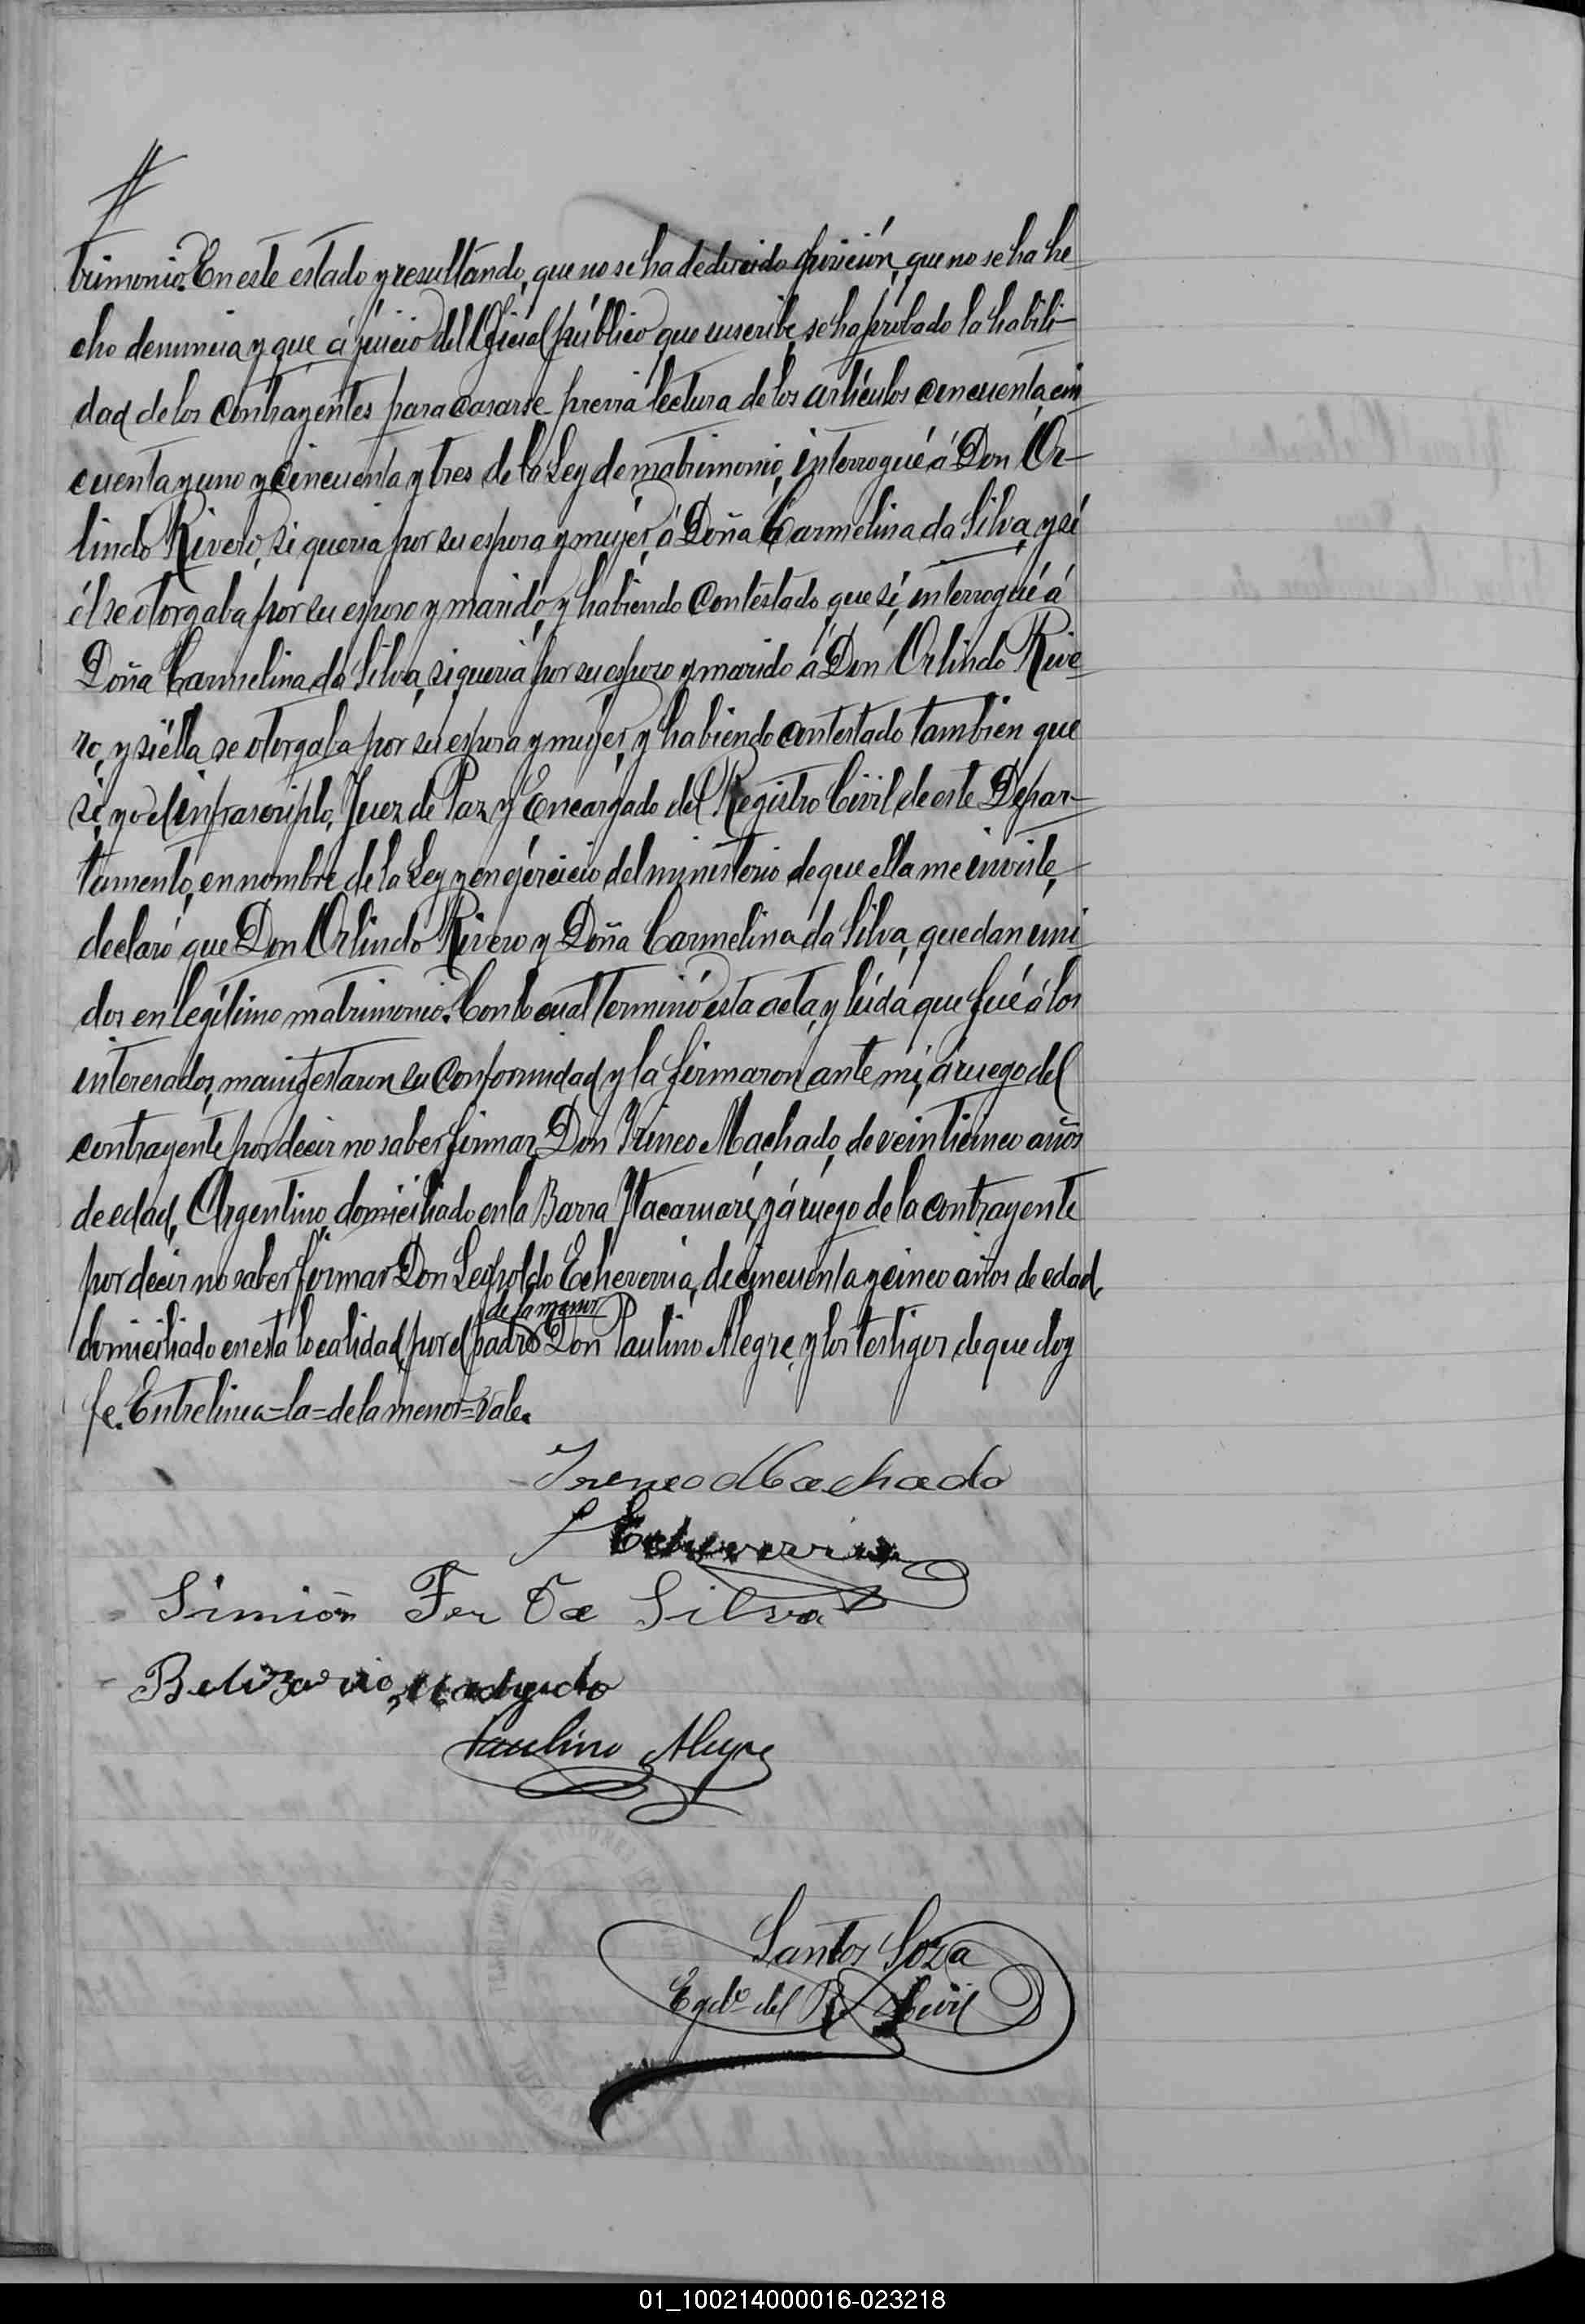 trimonio. En este estado y resultando, que no se ha deducido oposición, que no se ha he-
cho denuncia y que á juicio del Oficial público que suscribe, se ha probado la habili-
dad de los contrayentes para casarse, previa lectura de los artículos cincuenta, cin
cuenta y uno y cincuenta y tres de la Ley de matrimonio, interrogué á Don Or-
lindo Rivero, si queria por su esposa y mujer, á Doña Carmelina da Silva, y si
él se otorgaba por su esposo y marido, y habiendo contestado, que sí, interrogué á
Doña Carmelina da Silva, si queria por su esposo y marido á Don Orlindo Rive-
ro, y si ella se otorgaba por su esposa y mujer, y habiendo contestado tambien que
si, yo el infrascripto, Juez de Paz y Encargado del Registro Civil de este Depar-
tamento, en nombre de la Ley y en ejercicio del ministerio de que ella me inviste,
declaró que Don Orlindo Rivero y Doña Carmelina da Silva, quedan uni-
dos en legítimo matrimonio. Con lo cual terminó esta acta, y leída que fué á los
interesados, manifestaron su conformidad y la firmaron ante mi, á ruego del
contrayente por decir no saber firmar, Don Irineo Machado, de veinticinco años
de edad, Argentino, domiciliado en la Barra Itacaruaré, y á ruego de la contrayente
por decir no saber firmar Don Leopoldo Echeverria, de cincuenta y cinco años de edad,
de la menor
domiciliado en esta localidad, por el padre Don Paulino Alegre, y los testigos de que doy
fe. Entrelinea=la=de la menor=Vale.
Ireneo Machado
Echeverria
Simión Fer Da Silva
Belizario Machado
Paulino Alegre
Santos Soza
Egdo. del R. Civil
01_100214000016-023218